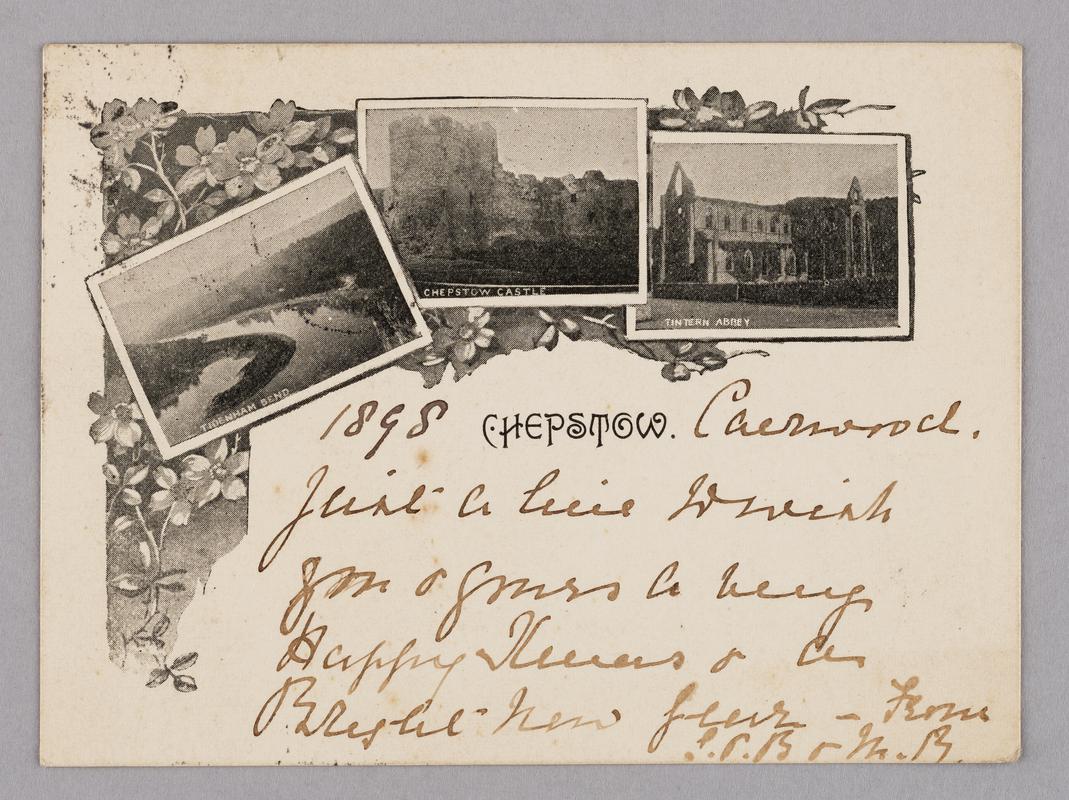 CHEPSTOW CASTLE
TINTERN ABBEY
TIDENHAM BEND
1898 CHEPSTOW. Caerwood.
Just a line to wish
you & yours a very
Happy Xmas & a
Bright New Year - From
P.B & M.B.